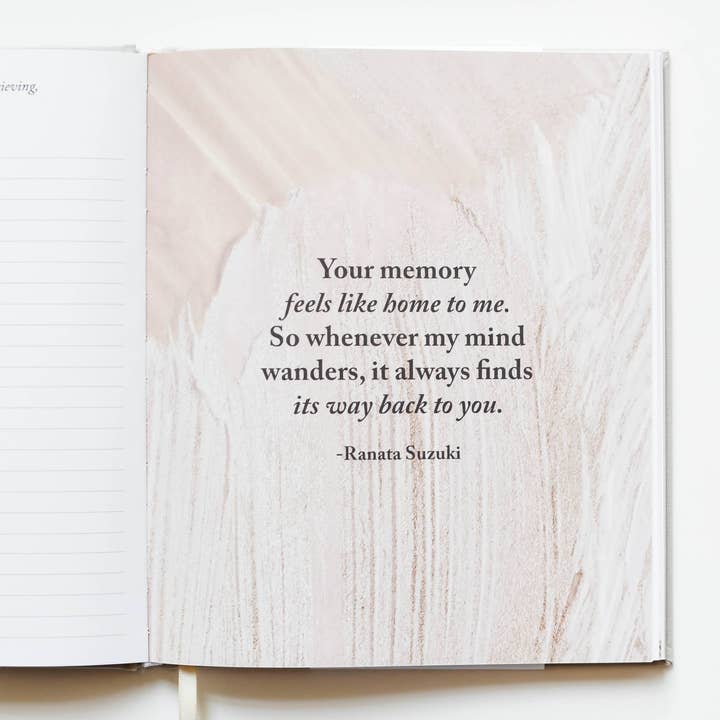 Your memory
feels like home to me.
So whenever my mind
wanders, it always finds
its way back to you.
-Ranata Suzuki